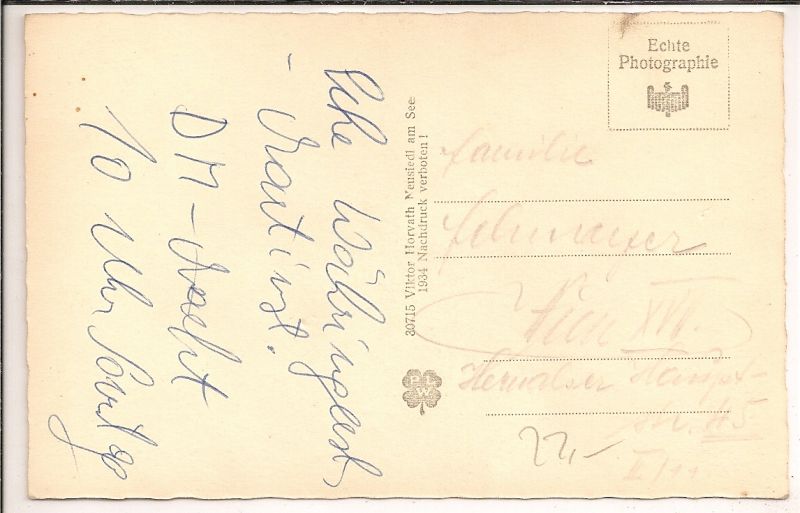 Ecke Währingerst.
- Martinst.
DM-Markt
10 Uhr Sonntag
30715 Viktor Horvath Neusiedl am See
1934 Nachdruck verboten!
P P W
Echte
Photographie
Familie
Wien XVII.
Hernalser Haupt-
str. 45
II/11
22,-